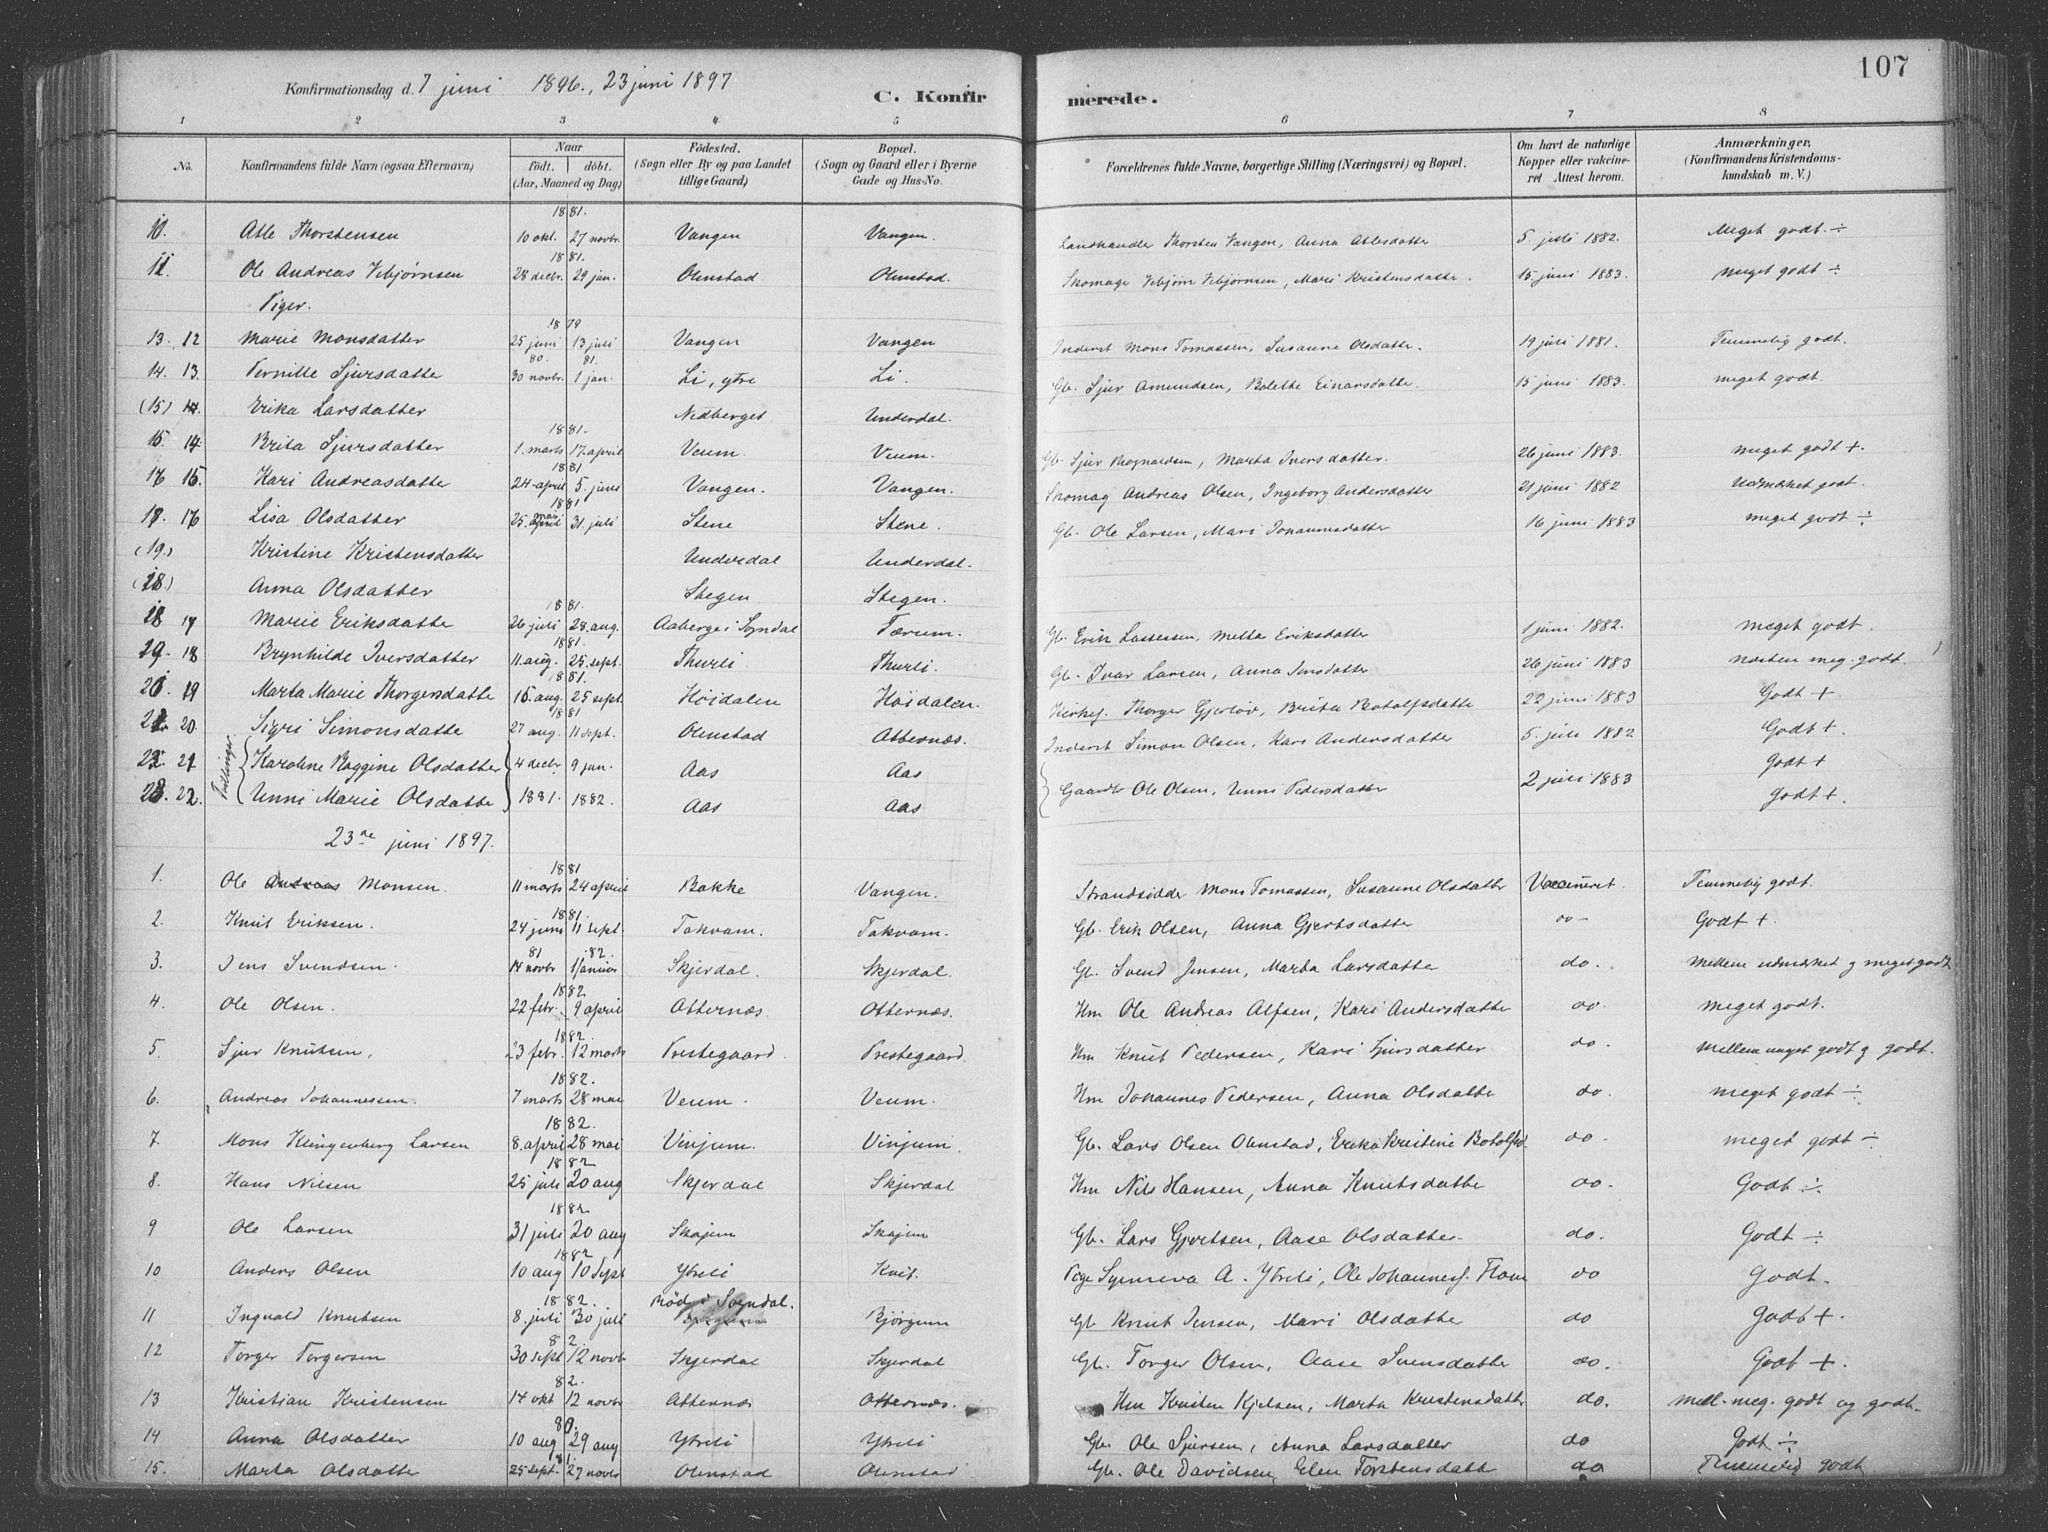 107
Konfirmationsdag d. 7 juni 1896., 23 juni 1897
C. Konfirmerede.
1 2 3 4 5 6 7 8
No. Konfirmandens fulde Navn (ogsaa Efternavn) Naar födt. döbt. (Aar, Maaned og Dag) Födested. (Sogn eller By og paa Landet tillige Gaard) Bopæl. (Sogn og Gaard eller i Byerne Gade og Hus-No. Forældrenes fulde Navne, borgerlige Stilling (Næringsvei) og Bopæl. Om havt de naturlige Kopper eller vakcineret Attest herom. Anmærkninger. (Konfirmandens Kristendomskundskab m. V.)
1881.
10. Atle Thorstensen 10 okt. 27 novbr. Vangen Vangen. Landhandler Thorsten Vangen, Anna Atlesdatter 5. juli 1882. Meget godt ÷
1881.
11. Ole Andreas Vebjørnsen 28 decbr. 29 jan. Olmstad Olmstad. Skomage Vebjørn Vebjørnsen, Mari Kristensdatte. 15 juni 1883. meget godt ÷
Piger.
1879
13. 12 Marie Monsdatter 25 juni 13 juli Vangen Vangen Inderst Mons Tomassen, Susanne Olsdatte. 19 juli 1881. Temmelig godt.
80. 81.
14. 13. Pernille Sjursdatte 30 novbr. 1 jan. Li, ytre Li. Gb. Sjur Amundsen, Bolette Einarsdatte. 15 juni 1883. meget godt.
(15) 14. Erika Larsdatter Nedberget Underdal.
1881.
15. 14. Brita Sjursdatter 1. marts 17. april Veum. Veum. Gb. Sjur Rognaldsen, Marta Iversdatter. 26 juni 1883. meget godt +.
1881
17 15. Kari Andreasdatte 24 april 5. juni Vangen. Vangen. Skomag Andreas Olsen, Ingeborg Andersdatter 21 juni 1882 Udmærket godt.
1881
17. 16 Lisa Olsdatter 25. mai april 31. juli Stene Stene. Gb. Ole Larsen, Mari Johannesdatter 16 juni 1883 meget godt ÷
(19.) Kristine Kristensdatter Underdal Underdal.
(18.) Anna Olsdatter Stegen Stegen.
1881.
18 17 Marie Eriksdatte 26 juli 28. aug. Aaberge i Sogndal Færum. Gb. Erik Lassesen, Metta Eriksdatter 1 juni 1882. meget godt.
1881.
29. 18 Brynhilde Iversdatter 11. aug. 25. sept. Thurli. Thurli. Gb. Ivar Larsen, Anna Jensdatter 26 juni 1883 næsten meg. godt.
1881.
20. 19 Marta Marie Thorgersdatte 15 aug. 25 sept. Höidalen Höidalen. Kirkes. Thorger Gjerløv, Brita Botolfsdatte 22 juni 1883 Godt +
1881
21. 20. Sigri Simonsdatte 27 aug. 11 sept. Olmstad Otternæs. Inderst Simon Olsen, Kari Andersdatter 5. juli 1882 Godt +.
Tvillinger.
22. 21 Karoline Baggine Olsdatter 4 decbr. 9 jan. Aas Aas Gaardb Ole Olsen, Unni Pedersdatter 2 juli 1883 Godt +
23. 22. Unni Marie Olsdatte 1881. 1882. Aas Aas Godt +.
23de juni 1897.
1881
1. Ole Andreas Monsen. 11 marts 24 april Bakke Vangen. Strandsidder Mons Tomassen, Susanne Olsdatter Vaccineret. Temmelig godt.
1881.
2. Knut Eriksen. 24 juni 11 sept. Tokvam. Tokvam. Gb. Erik Olsen, Anna Gjertsdatter do - Godt +.
81 82.
3. Jens Svendsen. 14 novbr 1 januar Skjerdal. Skjerdal. Gb. Svend Jensen, Marta Larsdatter do. Mellem udmærket g meget godt
1882
4. Ole Olsen. 22 febr. 9 april Otternæs Otternæs. Hm Ole Andreas Alfsen, Kari Andersdatte do. meget godt.
1882.
5. Sjur Knutsen, 23 febr. 12 marts Prestegaard. Prestegaard. Hm Knut Pedersen, Kari Sjursdatter do. mellem meget godt g godt.
1882.
6. Andreas Johannessen. 7 marts 28 mai Veum. Veum. Hm Johannes Pedersen, Anna Olsdatte do. meget godt ÷.
1882.
7. Mons Klingenberg Larsen 8. april 28 mai Vinjum. Vinjum. Gb. Lars Olsen Olmstad, Erika Kristine Botolfsd. do. meget godt ÷
1882
8. Hans Nilsen 25 juli 20 aug Skjerdal Skjerdal Hm Nils Hansen, Anna Knutsdatte do. Godt ÷.
1882
9 Ole Larsen 31 juli 20 aug Skajem Skajem Gb. Lars Gjertsen, Aase Olsdatter. do. Godt ÷
1882
10 Anders Olsen 10 aug 10 Sept Ytreli Kvit. Pige Synneva A. Ytreli, Ole Johannesf. Flaam do Godt.
1882. Nød i Sogndal.
11 Ingvald Knutsen 8. juli 30 juli Bjørgum Bjørgum Gb Knut Jensen, Mari Olsdatter do Godt +.
82.
12 Torger Torgersen 30 sept 12 novbr Skjerdal Skjerdal Gb. Torger Olsen, Aase Svensdatter do. Godt +.
82.
13 Kristian Kristensen 14 okt 12 novbr Otternæs Otternæs. Hm Kristen Kjelsen, Marta Kristensdatter do. mell. meg. godt og godt.
80.
14 Anna Olsdatter 10 aug 29 aug Ytreli Ytreli Gb. Ole Sjursen, Anna Larsdatter do Godt ÷
81.
15. Marta Olsdatte 25 sept. 27 novbr Olmstad Olmstad Gb. Ole Davidsen, Elen Torstensdatt do Temmelig godt